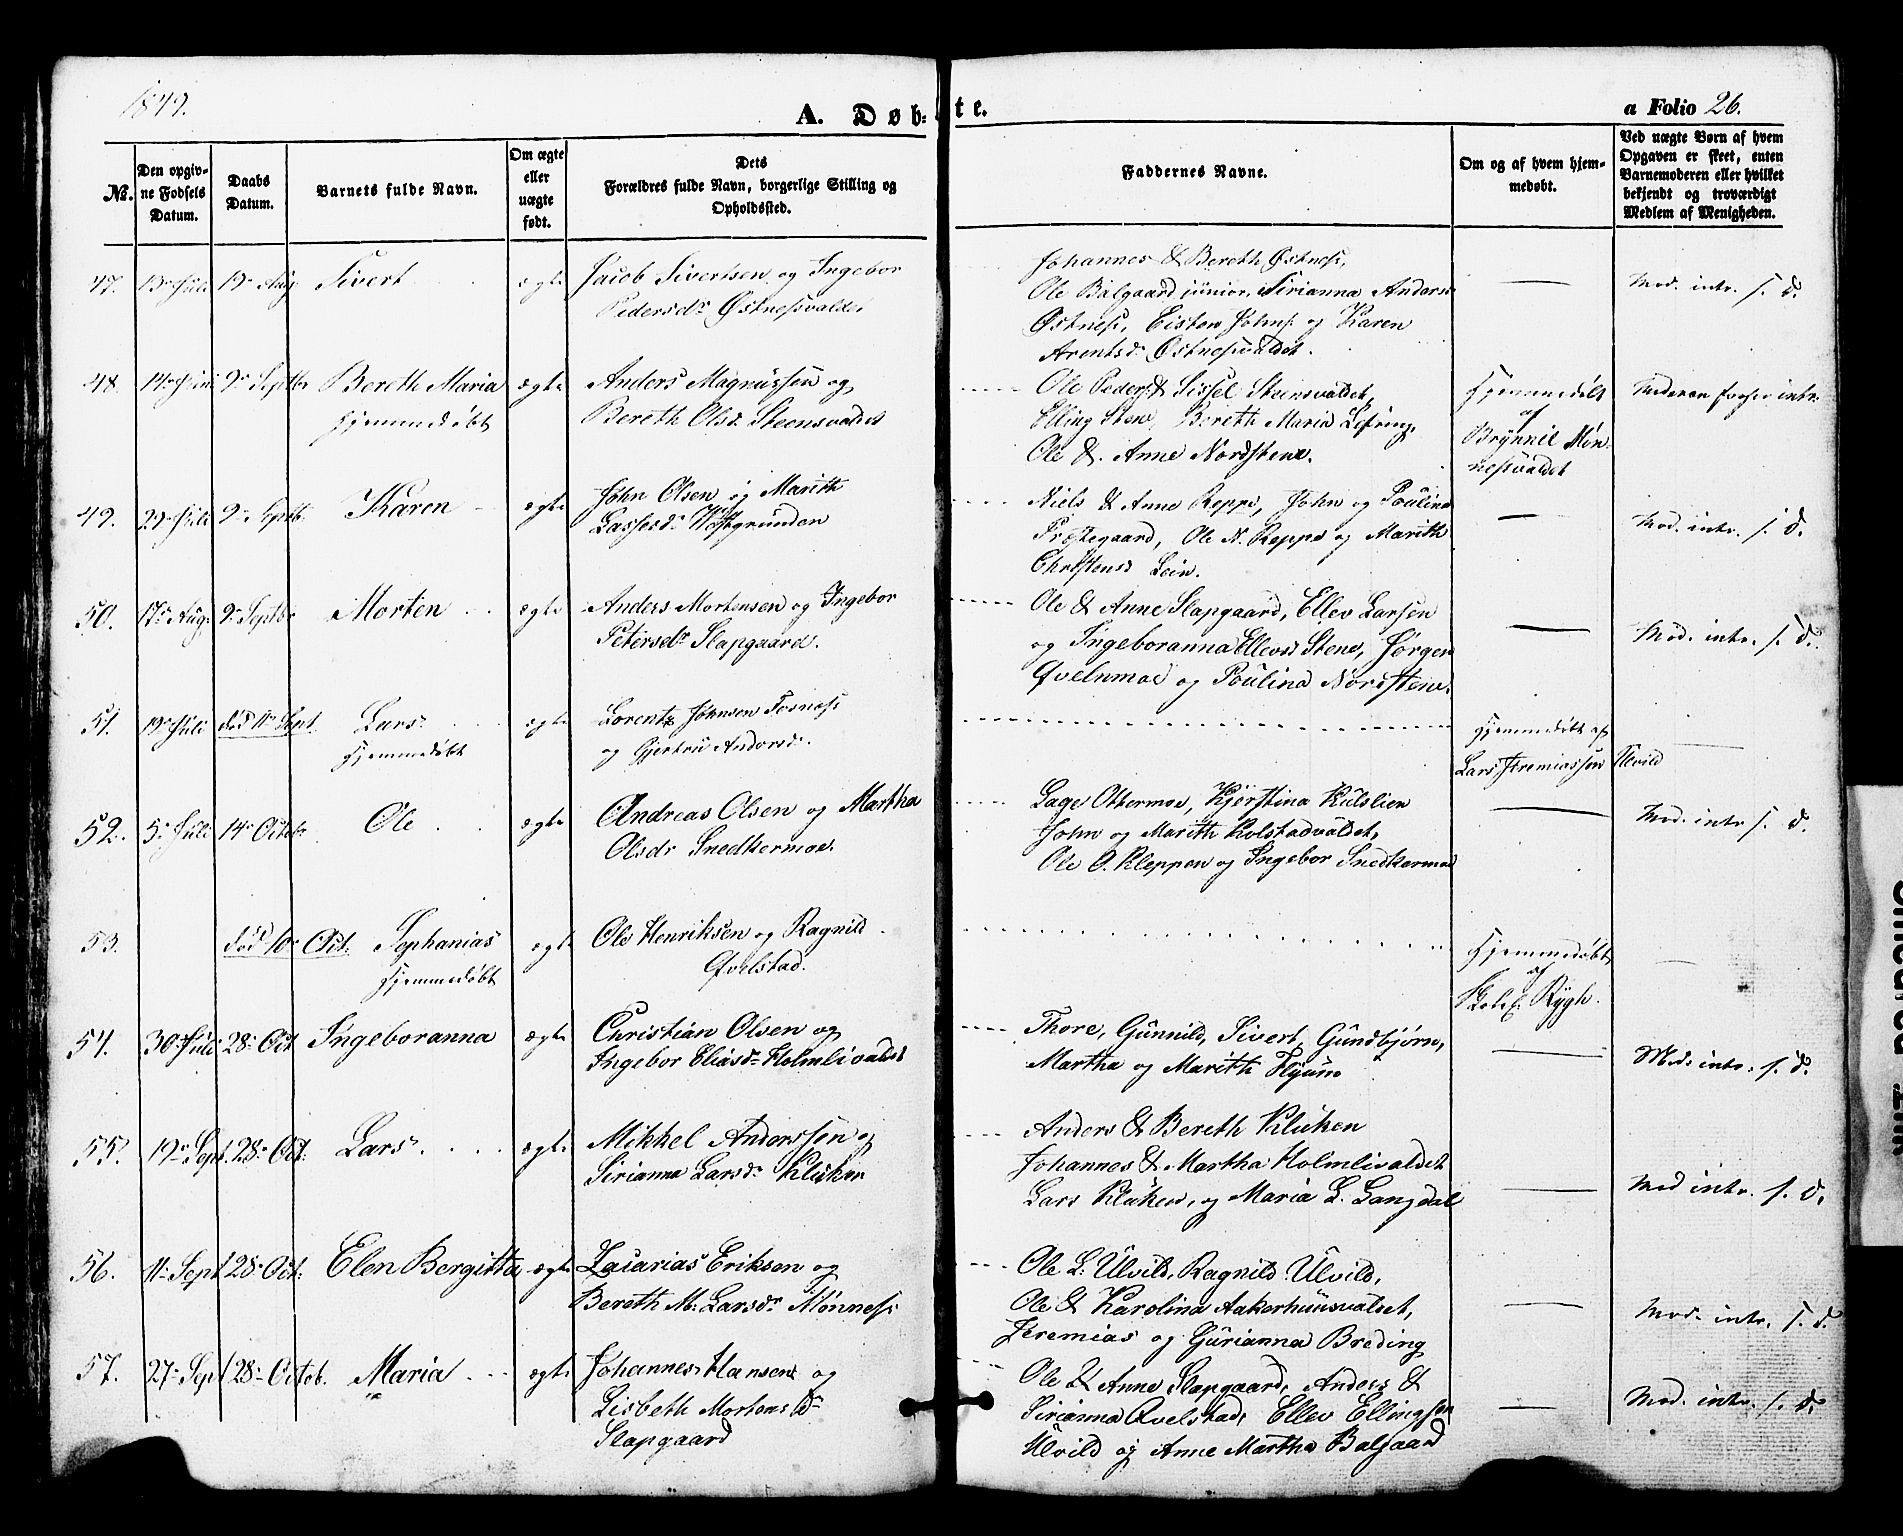 1849.
A. Døb-
te.
a Folio 26.
No.
Den opgiv-
ne Fødsels
Datum.
Daabs
Datum.
Barnets fulde Navn.
Om ægte
eller
uægte
født.
Dets
Forældres fulde Navn, borgerlige Stilling og
Opholdssted.
Faddernes Navne.
Om og af hvem hjem-
medøbt.
Ved uægte Børn af hvem
Opgaven er skeet, enten
Barnemoderen eller hvilket
bekjendt og troværdigt
Medlem af Menigheden.
47. 13de Juli 19de Aug Sivert ægte Jacob Sivertsen og Ingebor
Pedersdr Østnessvaldet
Johannes & Bereth Østness,
Ole Balgaard junior, Sirianna Andersd
Østness, Eisten Johns: og Karen
Arentsd. Østnessvaldet.
Mod. intr. s. d.
48. 14de Juni 9de Septbr Bereth Maria ægte Anders Magnussen og
hjemmedøbt Bereth Olsd. Steensvaldet
Ole Peders & Sissel Steensvaldet,
Elling Stene, Bereth Maria
Ole & Anne Nordstene.
Hjemmedøbt
af
Brynnil Møn-
nessvaldet
Moderen intr.
49. 29de Juli 9de Septb. Karen ægte John Olsen og Marith
Lassesdr
Niels & Anne Reppe, John og Poulina
Præstegaard, Ole N. Reppe og Marith
Christensd Lein.
Mod. intr. s. d.
50. 17de Aug: 9de Septbr Morten ægte Anders Mortensen og Ingebor
Petersdr Slapgaard.
Ole & Anne Slapgaard, Ellev Larsen
og Ingeboranna Ellevsd Stene, Jørgen
Qvelnmoe og Poulina Nordstene.
Mod. intr. s. d.
51. 19de Juli død 11te Sept. Lars ægte Lorentz Johnsen Fosness
hjemmedøbt og Gjertru Andersd.
Hjemmedøbt af
Lars Jeremiassen Ulvild
52. 5te Juli 14de Octobr. Ole ægte Andreas Olsen og Martha
Olsdr Snedkermoe.
Lage Ottermoe, Kjerstina Kulslien
John og Marith Kolstadvaldet,
Ole O. Kleppen og Ingebor Snedkermoe
Mod. intr s. d.
53. død 10de Oct. Sephanias ægte Ole Henriksen og Ragnild
hjemmedøbt Qvelstad.
Hjemmedøbt
af
Rygh.
54. 30te Juli 28de Oct Ingeboranna ægte Christian Olsen og
Ingebor Eliasdr Holmlivaldet
Thore, Gunnild, Sivert, Gundbjørn,
Martha og Marith Flyum
Mod. intr. s. d.
55. 19de Sept. 28de Oct. Lars ægte Mikkel Anderssen og
Sirianna Larsdr Kluken
Anders & Bereth Kluken
Johannes & Martha Holmlivaldet
Lars Kluken, og Maria L. Langdal
Mod intr. s. d.
56. 11te Sept 28de Oct: Elen Bergitta ægte Zacarias Eriksen og
Bereth M. Larsdr Mønness
Ole L. Ulvild, Ragnild Ulvild,
Ole & Karolina Aakerhuusvaldet,
Jeremias og Gurianna Breding
Mod. intr. s. d.
57. 27de Sept 28de Octob. Maria ægte Johannes Hansen og
Lisbeth Mortensdr
Slapgaard
Ole & Anne Slapgaard, Anders &
Sirianna Qvelstad, Ellev Ellingsen
Ulvild og Anne Martha Balgaard
Mod. intr. s. d.